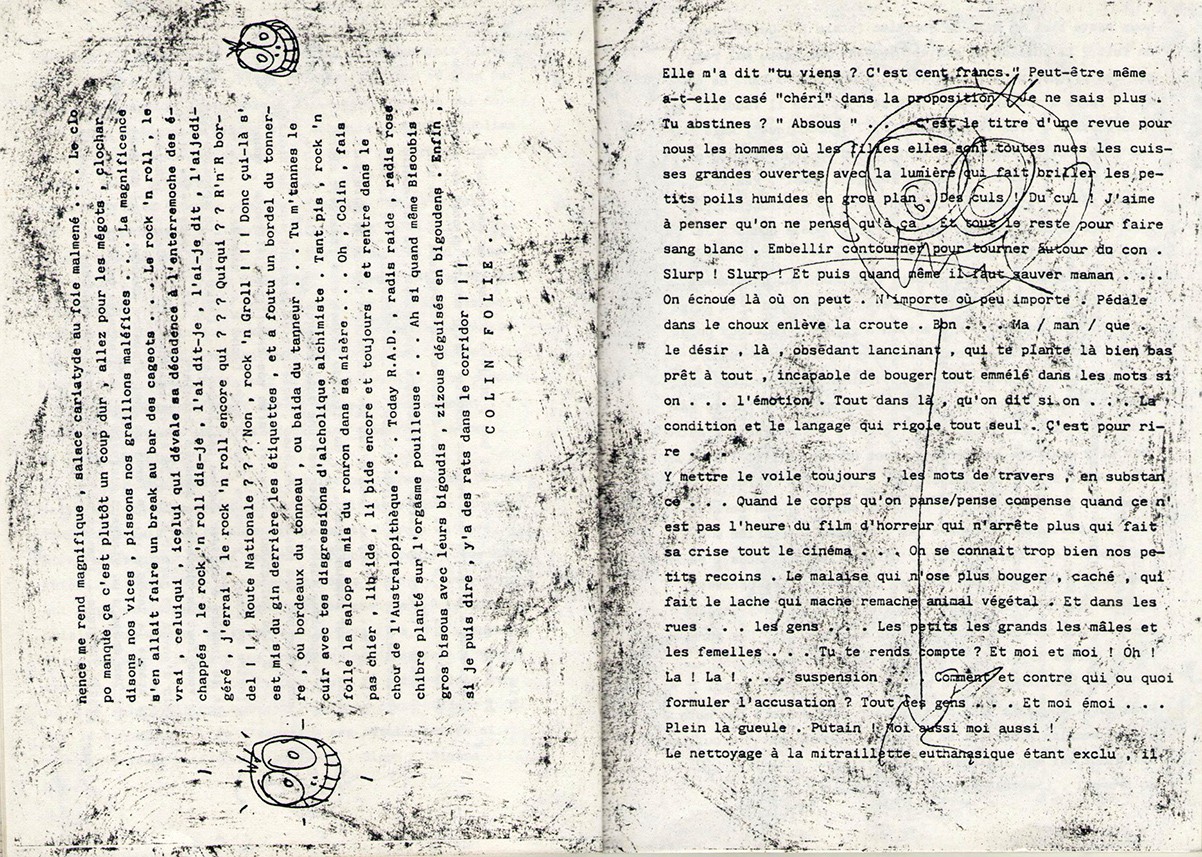 nence me rend magnifique , salace cariatyde au foie malmené . . . Le clo
po manque ça c'est plutôt un coup dur , allez pour les mégots , clochar
disons nos vices , pissons nos graillons maléfices . . . La magnificence
s'en allait faire un break au bar des cageots . . . Le rock 'n roll , le
vrai , celuiqui , icelui qui dévale sa décadence à l'enterremoche des é-
chappés , le rock 'n roll dis-je , l'ai dit-je , l'ai-je dit , l'aijedi-
géré , j'errai , le rock 'n roll encore qui ? ? ? Quiqui ? ? R'n'R bor-
del ! ! ! Route Nationale ? ? ? Non , rock 'n Groll ! ! ! Donc çui-là s'
est mis du gin derrière les étiquettes , et a foutu un bordel du tonner-
re , ou bordeaux du tonneau , ou baida du tanneur . . . Tu m'tannes le
cuir avec tes disgressions d'alcholique alchimiste . Tant pis , rock 'n
folle la salope a mis du ronron dans sa misère . . . Oh , Colin , fais
pas chier , lib ide , li bide encore et toujours , et rentre dans le
chour de l'Australopithèque . . . Today R.A.D. , radis raide , radis rose
chibre planté sur l'orgasme pouilleuse . . . Ah si quand même Bisoubis ,
gros bisous avec leurs bigoudis , zizous déguisés en bigoudens . Enfin ,
si je puis dire , y'a des rats dans le corridor ! ! !
COLIN FOLIE .
Elle m'a dit "tu viens ? C'est cent francs." Peut-être même
a-t-elle casé "chéri" dans la proposition . Je ne sais plus .
Tu abstines ? " Absous " . . . C'est le titre d'une revue pour
nous les hommes où les filles elles sont toutes nues les cuis-
ses grandes ouvertes avec la lumière qui fait briller les pe-
tits poils humides en gros plan . Des culs ! Du cul ! J'aime
à penser qu'on ne pense qu'à ça . Et tout le reste pour faire
sang blanc . Embellir contourner pour tourner autour du con .
Slurp ! Slurp ! Et puis quand même il faut sauver maman . . .
On échoue là où on peut . N'importe où peu importe . Pédale
dans le choux enlève la croute . Bon . . . Ma / man / que
le désir , là , obsédant lancinant , qui te plante là bien bas
prêt à tout , incapable de bouger tout emmélé dans les mots si
on . . . l'émotion . Tout dans là , qu'on dit si on . . . La
condition et le langage qui rigole tout seul . C'est pour ri-
re . .
Y mettre le voile toujours , les mots de travers , en substan
ce . . . Quand le corps qu'on panse/pense compense quand ce n'
est pas l'heure du film d'horreur qui n'arrête plus qui fait
sa crise tout le cinéma . . . On se connait trop bien nos pe-
tits recoins . Le malaise qui n'ose plus bouger , caché , qui
fait le lache qui mache remache animal végétal . Et dans les
rues . . . les gens . . . Les petits les grands les mâles et
les femelles . . . Tu te rends compte ? Et moi et moi ! Oh !
La ! La ! . . . suspension . . . Comment et contre qui ou quoi
formuler l'accusation ? Tout ces gens . . . Et moi émoi . . .
Plein la gueule . Putain ! Moi aussi moi aussi !
Le nettoyage à la mitraillette euthanasique étant exclu , il